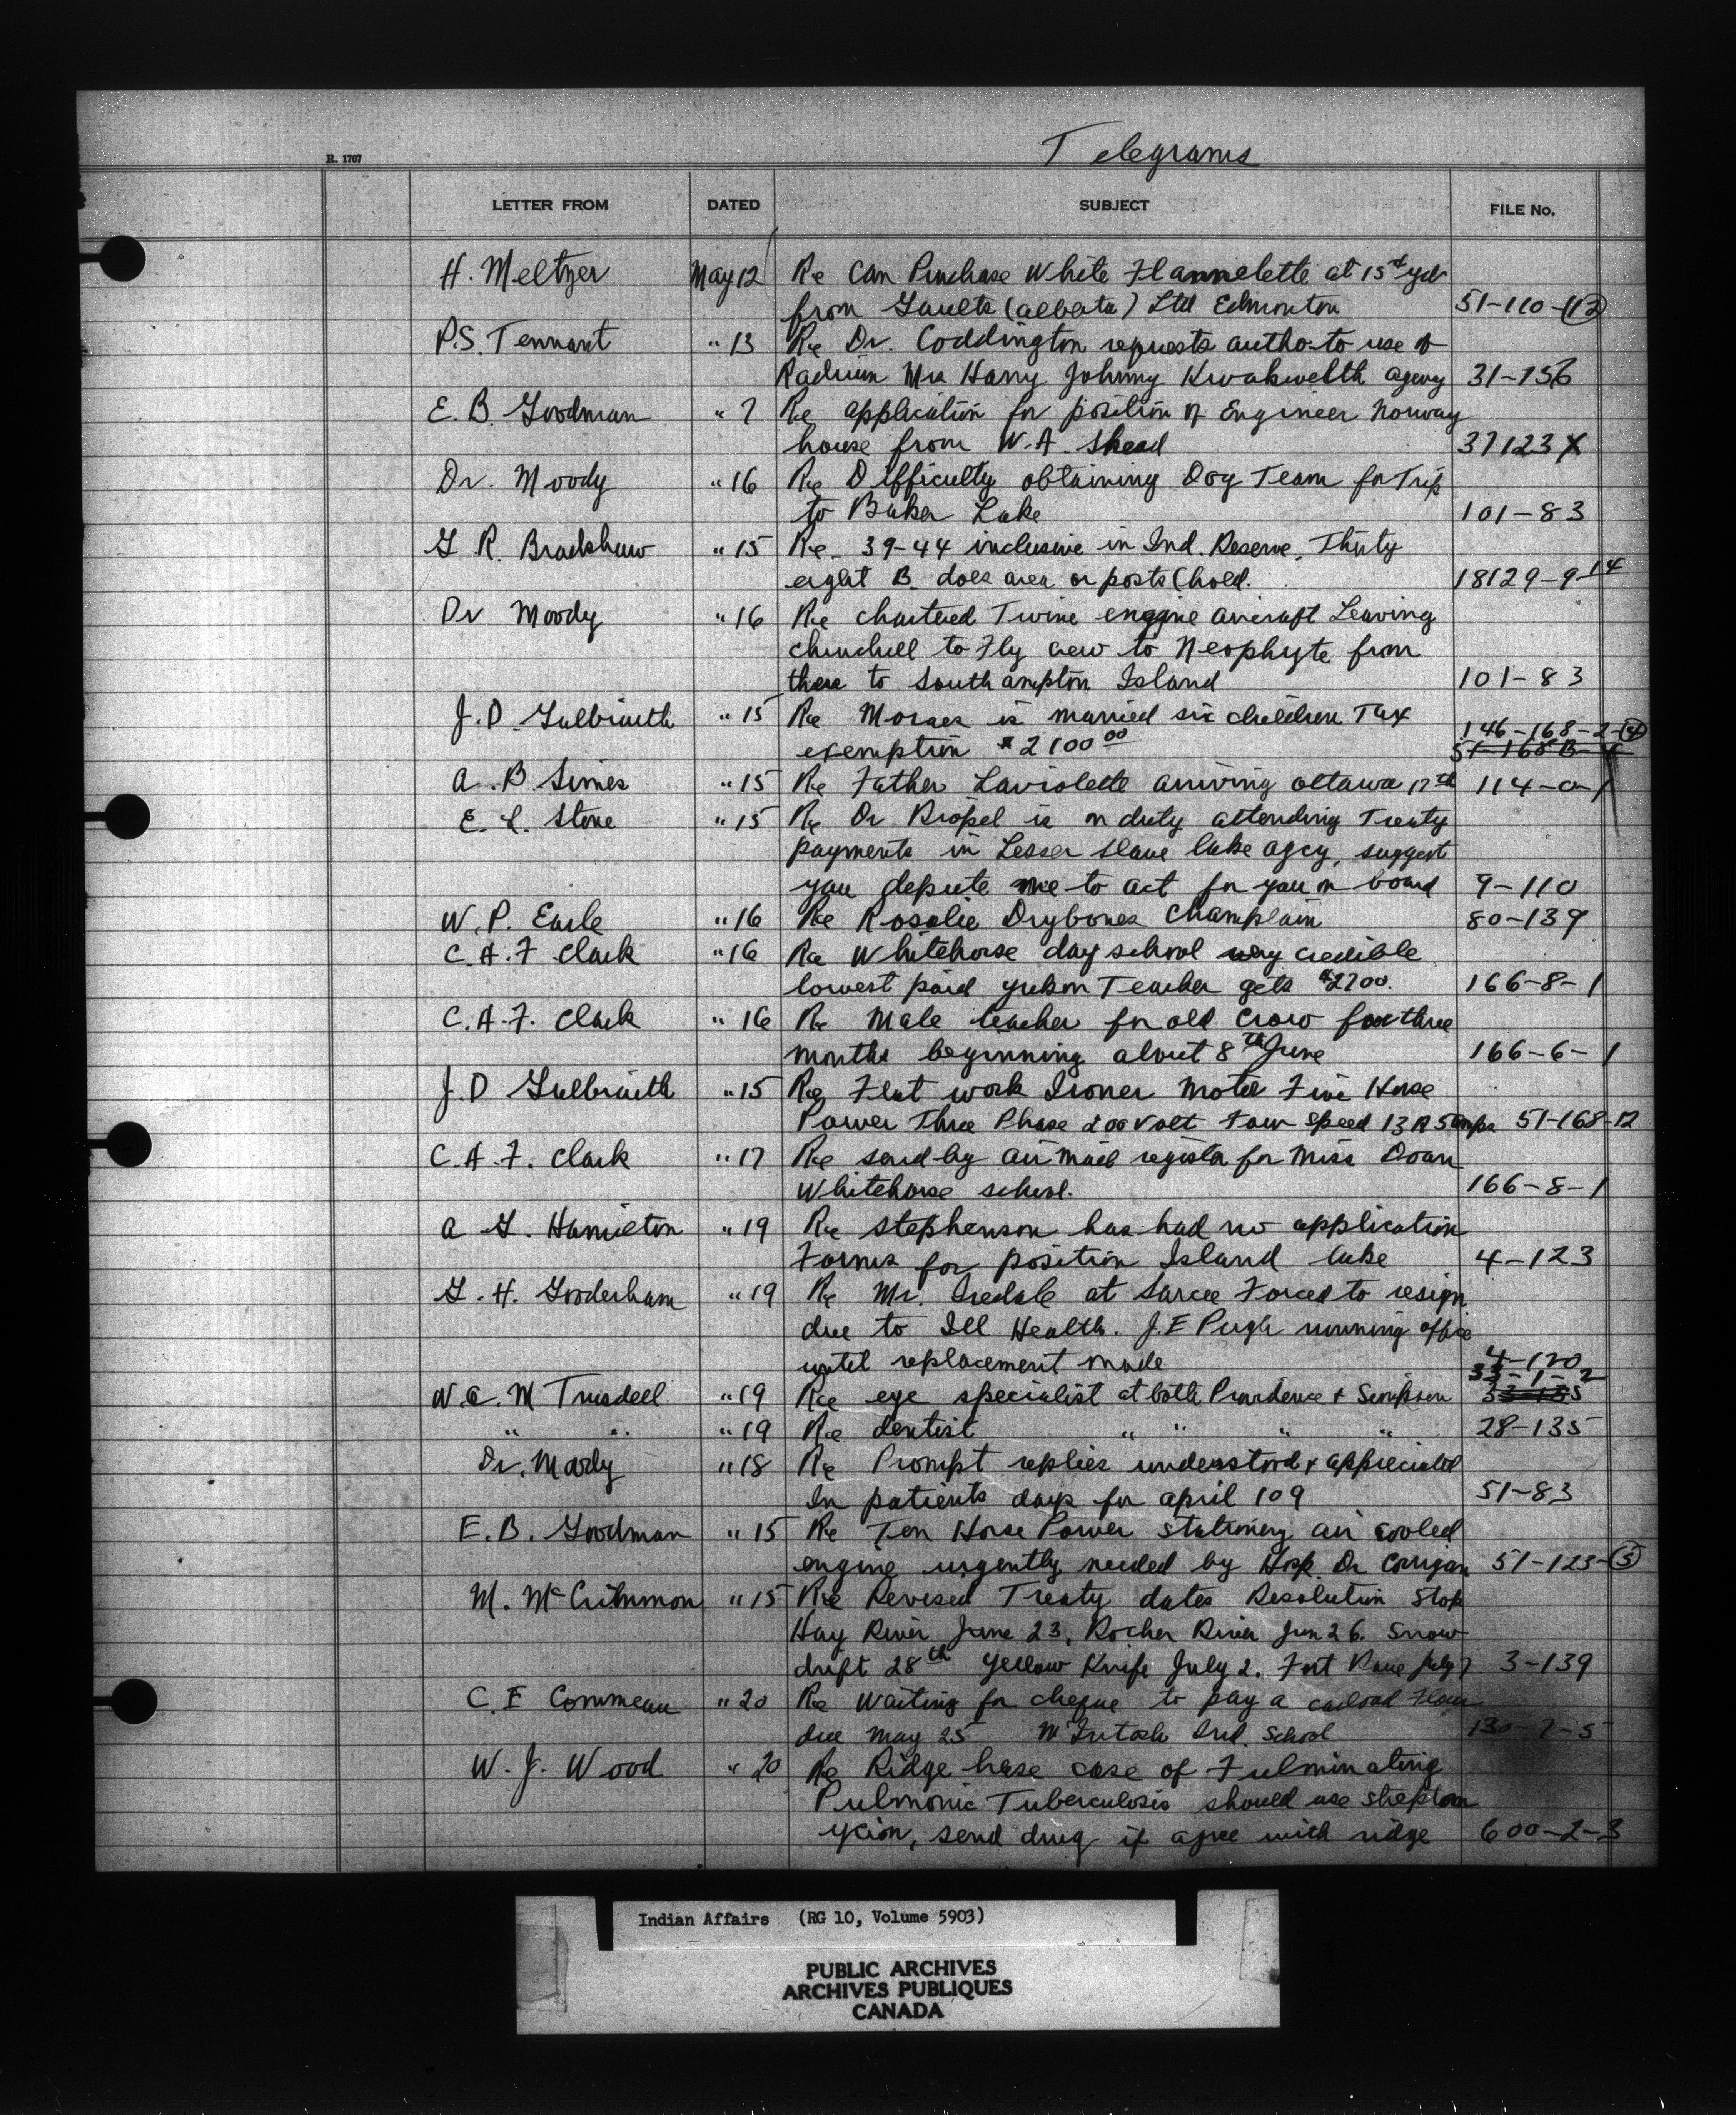 Telegrams
R. 1707
LETTER FROM DATED SUBJECT FILE No.
H. Meltzer May 12 Re Can Purchase White Flannelette at 15¢ yd
from Gaults (Alberta) Ltd Edmonton 51-110-(12)
P.S. Tennant " 13 Re Dr. Coddington requests autho. to use of
Radium Mrs Harry Johnny Kwakwelth agency 31-156
E. B. Goodman " 7 Re application for position of Engineer Norway
house from W. A. Shead 37123 X
Dr. Moody " 16 Re Difficulty obtaining Dog Team for Trip
to Baker Lake 101-83
G R. Bradshaw " 15 Re 39-44 inclusive in Ind. Reserve, Thirty
eight B does area or posts hold. 18129-9-14
Dr Moody " 16 Re chartered Twine engine aircraft Leaving
churchill to Fly crew to Neophyte from
there to Southampton Island 101-83
J. D. Galbraith " 15 Re Moraes is married six children Tax
exemption $2100 00 146-168-2-(4)
51-168 B
A. B. Simes " 15 Re Father Laviolette arriving ottawa 17th 114-0-1
E. L. Stone " 15 Re Dr is on duty attending Treaty
payments in Lesser Slave lake agcy, suggest
you depute me to act for you on board 9-110
W. P. Earle " 16 Re Rosalie Drybones Champlain 80-139
C. A. F Clark " 16 Re Whitehorse day school very credible
lowest paid yukon Teacher gets $2700. 166-8-1
C. A. F. Clark " 16 Re Male teacher for old Crow for three
months beginning about 8th June 166-6-1
J. D Galbraith " 15 Re Flat work Ironer Motor Five Horse
Power Three Phase 200 Volt Four Speed 13 R 5 amps 51-168-12
C. A. F. Clark " 17 Re send by air mail register for Miss Doan
Whitehorse school. 166-8-1
A G. Hamilton " 19 Re Stephenson has had no application
Forms for position Island lake 4-123
G. H. Gooderham " 19 Re Mr. Iredale at Sarcee Forced to resign
due to Ill Health. J. E Pugh running office
until replacement made 4-120
W. A. M Truesdell " 19 Re eye specialist at both Providence + Simpson 33-1-2
" " " 19 Re dentist " " " " 28-135
Dr. Moody " 18 Re Prompt replies understood + appreciated
In patients days for april 109 51-83
E. B. Goodman " 15 Re Ten Horse Power stationery air cooled
engine urgently needed by Hosp. Dr Corrigan 51-123-(5)
M. McCrimmon " 15 Re Revised Treaty dates Resolution Stop
Hay River June 23, Rocher River Jun 26. Snow
drift 28th Yellow Knife July 2. Fort Rae July 7 3-139
C. E Commeau " 20 Re Waiting for cheque to pay a carload Flour
due May 25 McIntosh Ind. School 130-7-5
W. J. Wood " 20 Re Ridge hase case of Fulminating
Pulmonic Tuberculosis should use streptom
ycion, send drug if agree with ridge 600-2-3
Indian Affairs (RG 10, Volume 5903)
PUBLIC ARCHIVES
ARCHIVES PUBLIQUES
CANADA